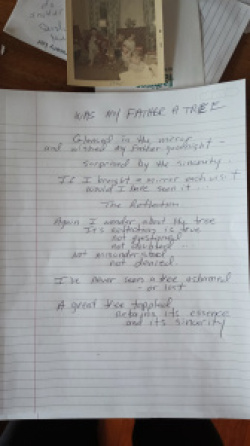 WAS MY FATHER A TREE
Glanced in the mirror
and wished my father goodnight -
Surprised by the sincerity
If I brought a mirror each visit
would I have seen it...
The Reflection
Again I wonder about the tree
Its existing is true
not questioned
not doubted
not misunderstood
not denied.
I've never seen a tree ashamed
- or lost
A great tree toppled
Retains its essence
and its sincerity